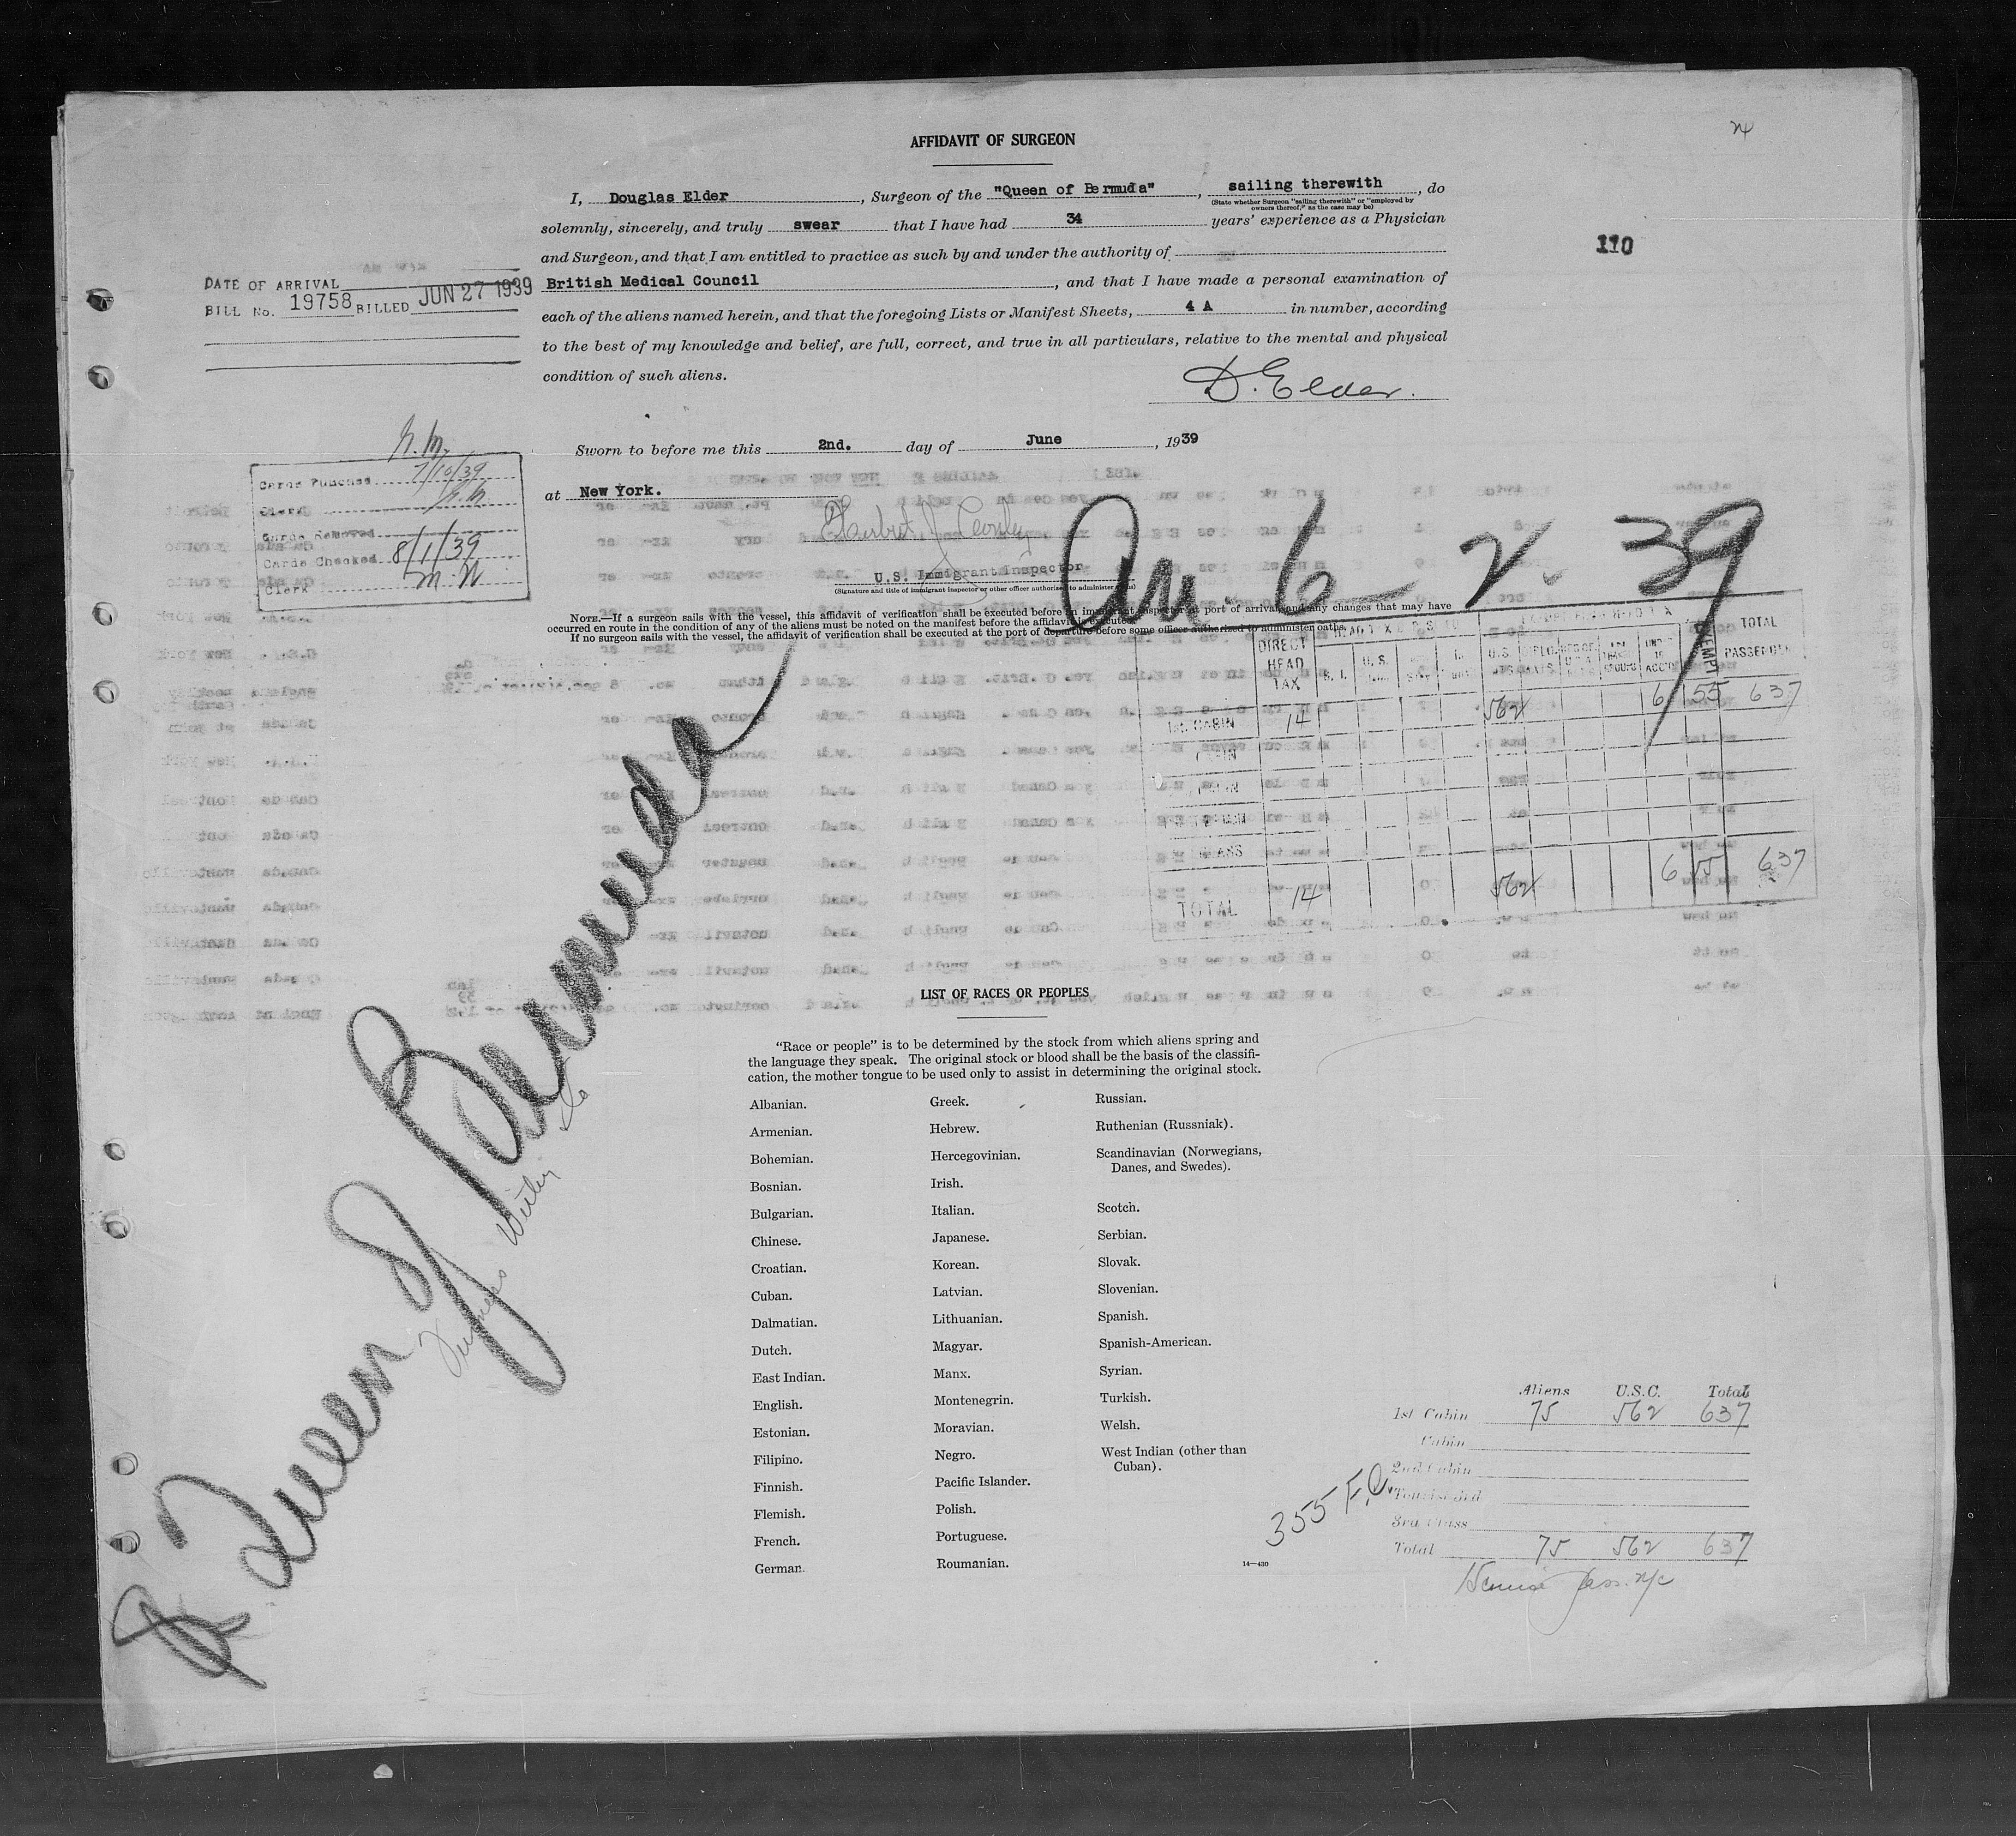 AFFIDAVIT OF SURGEON
I, Douglas Elder, Surgeon of the "Queen of Bermuda", sailing therewith, do
(State whether Surgeon "sailing therewith" or "employed by
owners thereof," as the case may be)
solemnly, sincerely, and truly swear that I have had 34 years' experience as a Physician
and Surgeon, and that I am entitled to practice as such by and under the authority of
British Medical Council, and that I have made a personal examination of
each of the aliens named herein, and that the foregoing Lists or Manifest Sheets, 4 A in number, according
to the best of my knowledge and belief, are full, correct, and true in all particulars, relative to the mental and physical
condition of such aliens.
D. Elder.
110
DATE OF ARRIVAL
BILL No. 19758 BILLED JUN 27 1939
Sworn to before me this 2nd. day of June, 1939
at New York.
U.S. Immigrant inspector
(Signature and title of immigrant inspector or other officer authorized to administer oaths)
Cards Punched 7/10/39
Clerk
Cards Removed
Cards Checked 8/1/39
Clerk M.N
6-2-39
NOTE.—If a surgeon sails with the vessel, this affidavit of verification shall be executed before an immigrant inspector at port of arrival, and any changes that may have
occurred en route in the condition of any of the aliens must be noted on the manifest before the affidavit is executed.
If no surgeon sails with the vessel, the affidavit of verification shall be executed at the port of departure before some officer authorized to administer oaths.
DIRECT HEAD TAX U.S. EXEMPT TOTAL PASSENGERS
1st CABIN 14 562 6 55 637
CABIN
TOTAL 14 562 6 55 637
S. Queen of Bermuda
Furness Withy Co
LIST OF RACES OR PEOPLES
"Race or people" is to be determined by the stock from which aliens spring and
the language they speak. The original stock or blood shall be the basis of the classifi-
cation, the mother tongue to be used only to assist in determining the original stock.
Albanian.
Armenian.
Bohemian.
Bosnian.
Bulgarian.
Chinese.
Croatian.
Cuban.
Dalmatian.
Dutch.
East Indian.
English.
Estonian.
Filipino.
Finnish.
Flemish.
French.
German.
Greek.
Hebrew.
Hercegovinian.
Irish.
Italian.
Japanese.
Korean.
Latvian.
Lithuanian.
Magyar.
Manx.
Montenegrin.
Moravian.
Negro.
Pacific Islander.
Polish.
Portuguese.
Roumanian.
Russian.
Ruthenian (Russniak).
Scandinavian (Norwegians,
Danes, and Swedes).
Scotch.
Serbian.
Slovak.
Slovenian.
Spanish.
Spanish-American.
Syrian.
Turkish.
Welsh.
West Indian (other than
Cuban).
14—430
355 F.C.
Aliens U.S.C. Total
1st Cabin 75 562 637
Cabin
2nd Cabin
Tourist 3rd
3rd Class
Total 75 562 637